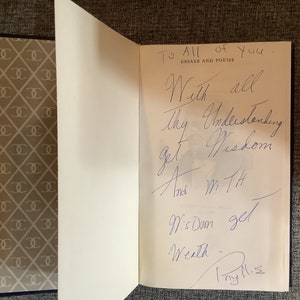 To All of You.
ESSAYS AND POEMS
With all
thy Understanding
get Wisdom
And with
Wisdom get
Weath.